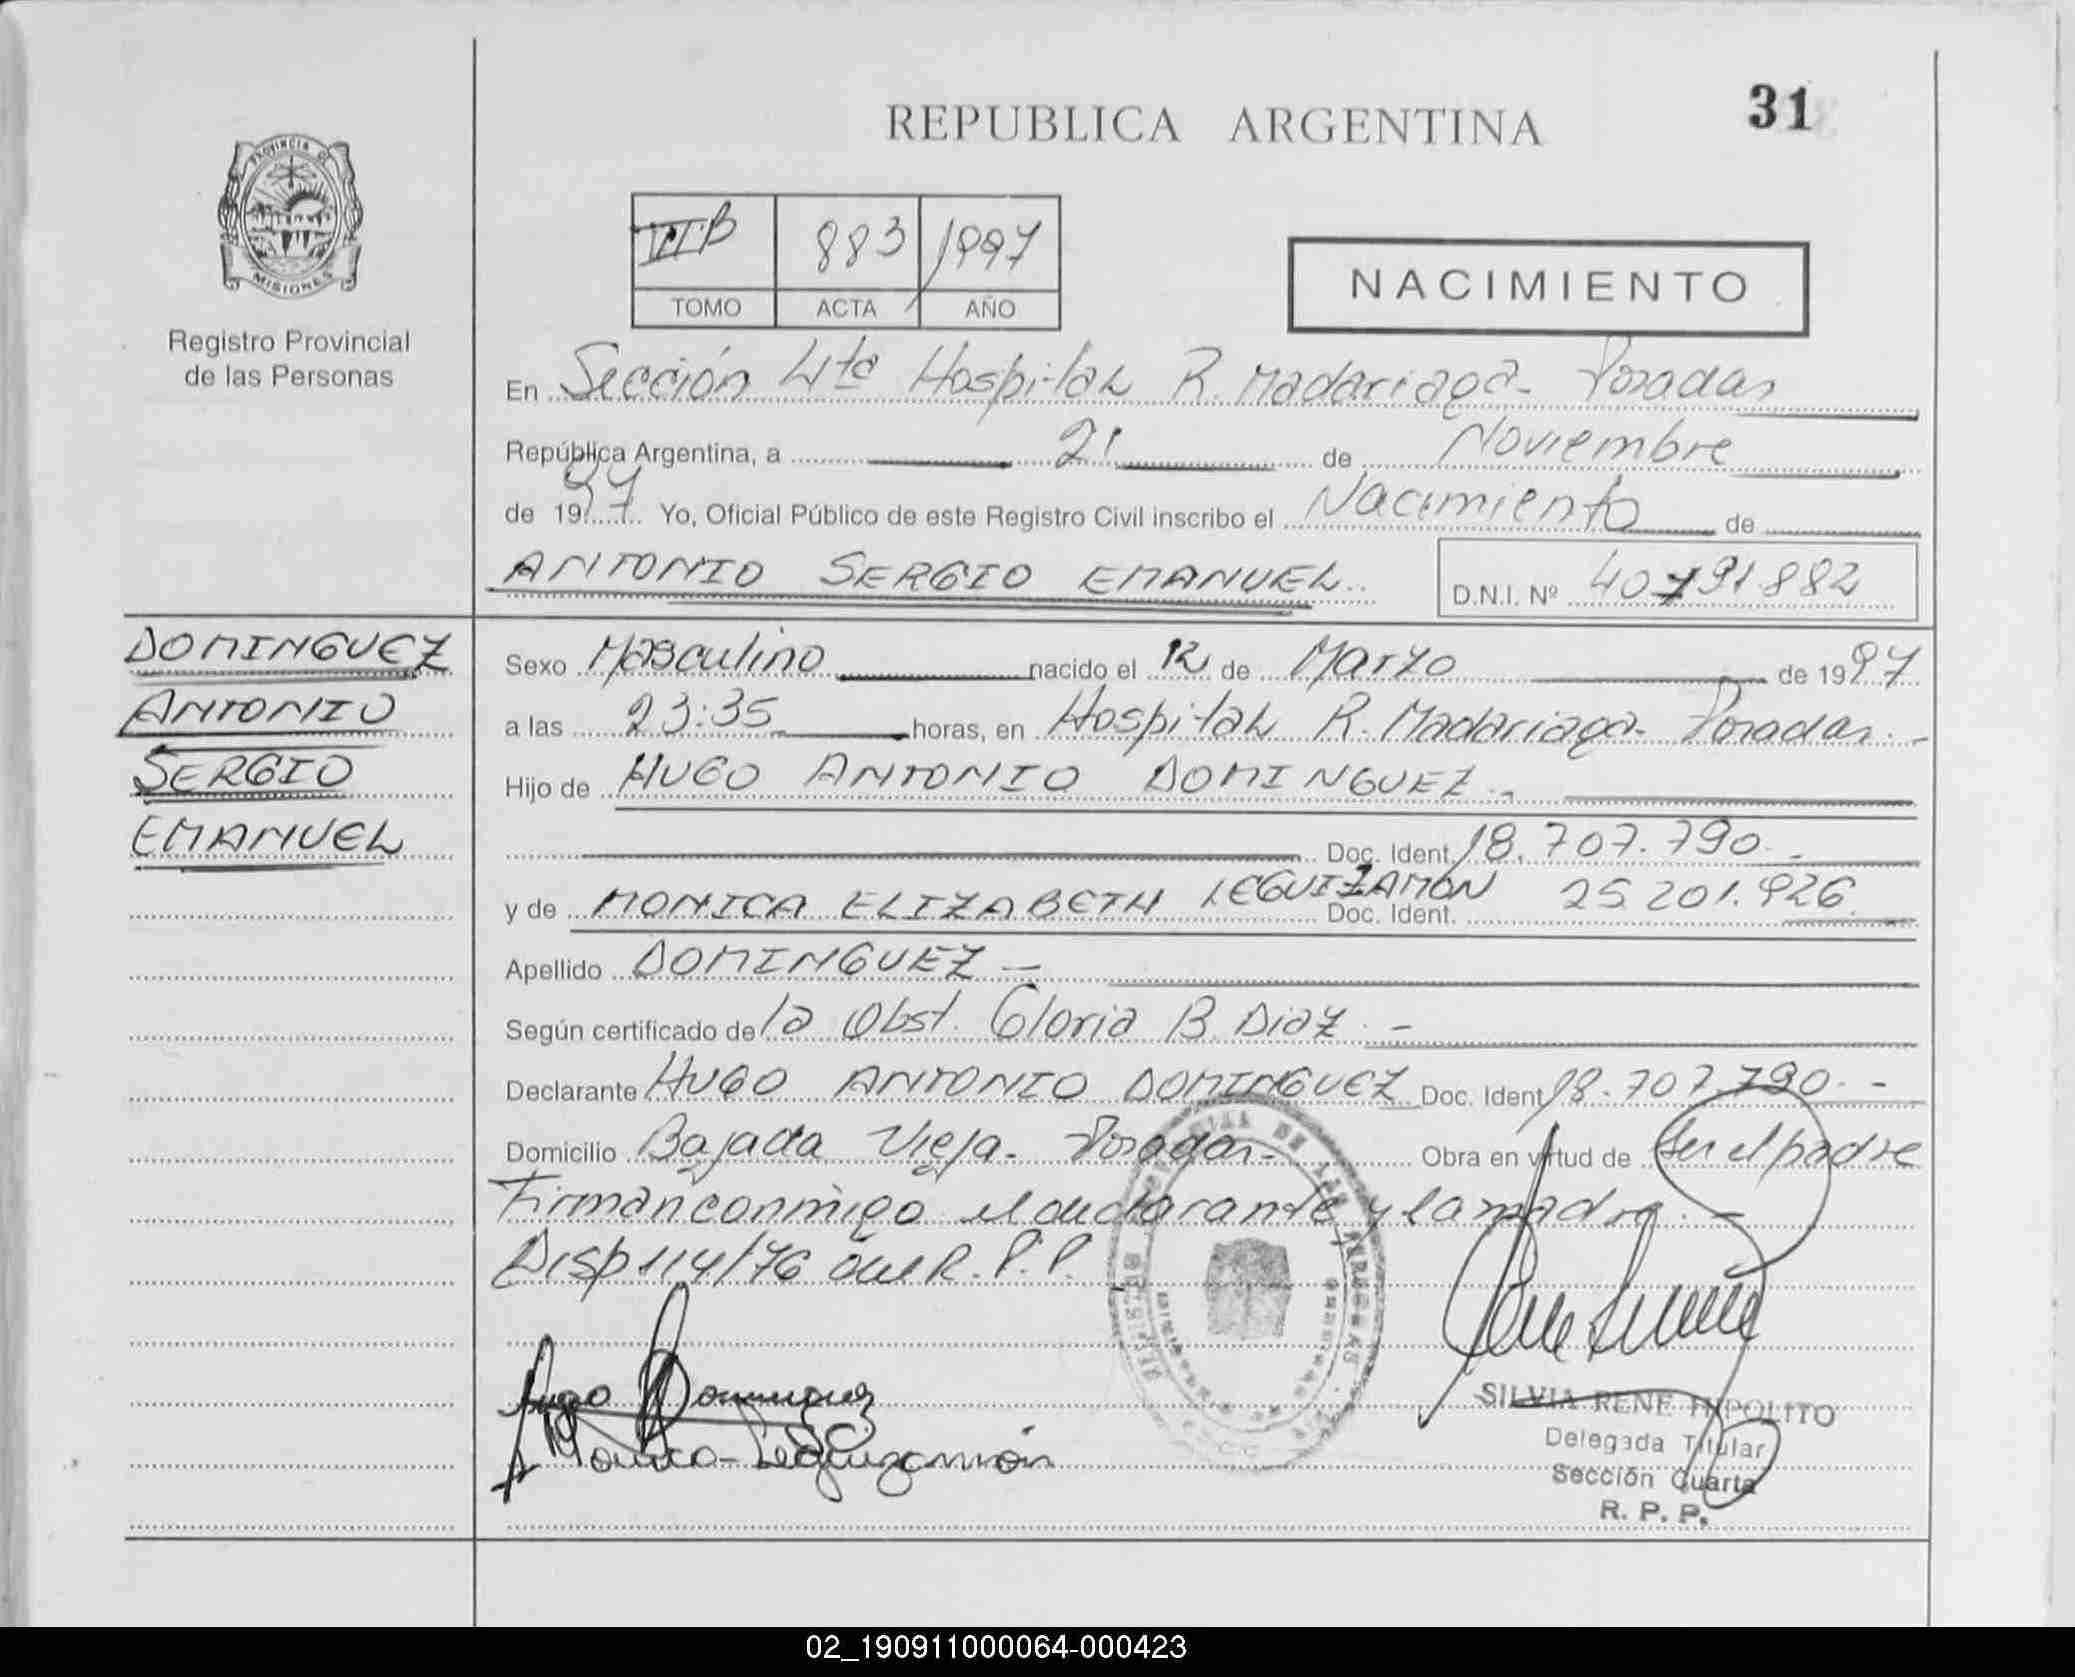 REPUBLICA ARGENTINA
31
PROVINCIA DE
MISIONES
Registro Provincial
de las Personas
VII B 883 1997
TOMO ACTA AÑO
NACIMIENTO
En Sección 4ta Hospital R. Madariaga - Posadas
República Argentina, a 21 de Noviembre
de 1997 Yo, Oficial Público de este Registro Civil inscribo el Nacimiento de
ANTONIO SERGIO EMANUEL D.N.I. Nº 40791882
DOMINGUEZ
ANTONIO
SERGIO
EMANUEL
Sexo Masculino nacido el 12 de Marzo de 1997
a las 23:35 horas, en Hospital R. Madariaga - Posadas.-
Hijo de HUGO ANTONIO DOMINGUEZ.-
Doc. Ident. 18.707.790.-
y de MONICA ELIZABETH LEGUIZAMON Doc. Ident. 25 201.926
Apellido DOMINGUEZ -
Según certificado de la Obst. Gloria B. Diaz.-
Declarante HUGO ANTONIO DOMINGUEZ Doc. Ident. 18.707.790.-
Domicilio Bajada Vieja - Posadas - Obra en virtud de Ser el padre
Firman conmigo el declarante y la madre.-
Disp 114/76 del R.P.P.
Hugo Dominguez
Monica Leguizamón
SILVIA RENE HIPOLITO
Delegada Titular
Sección Cuarta
R. P. P.
02_190911000064-000423